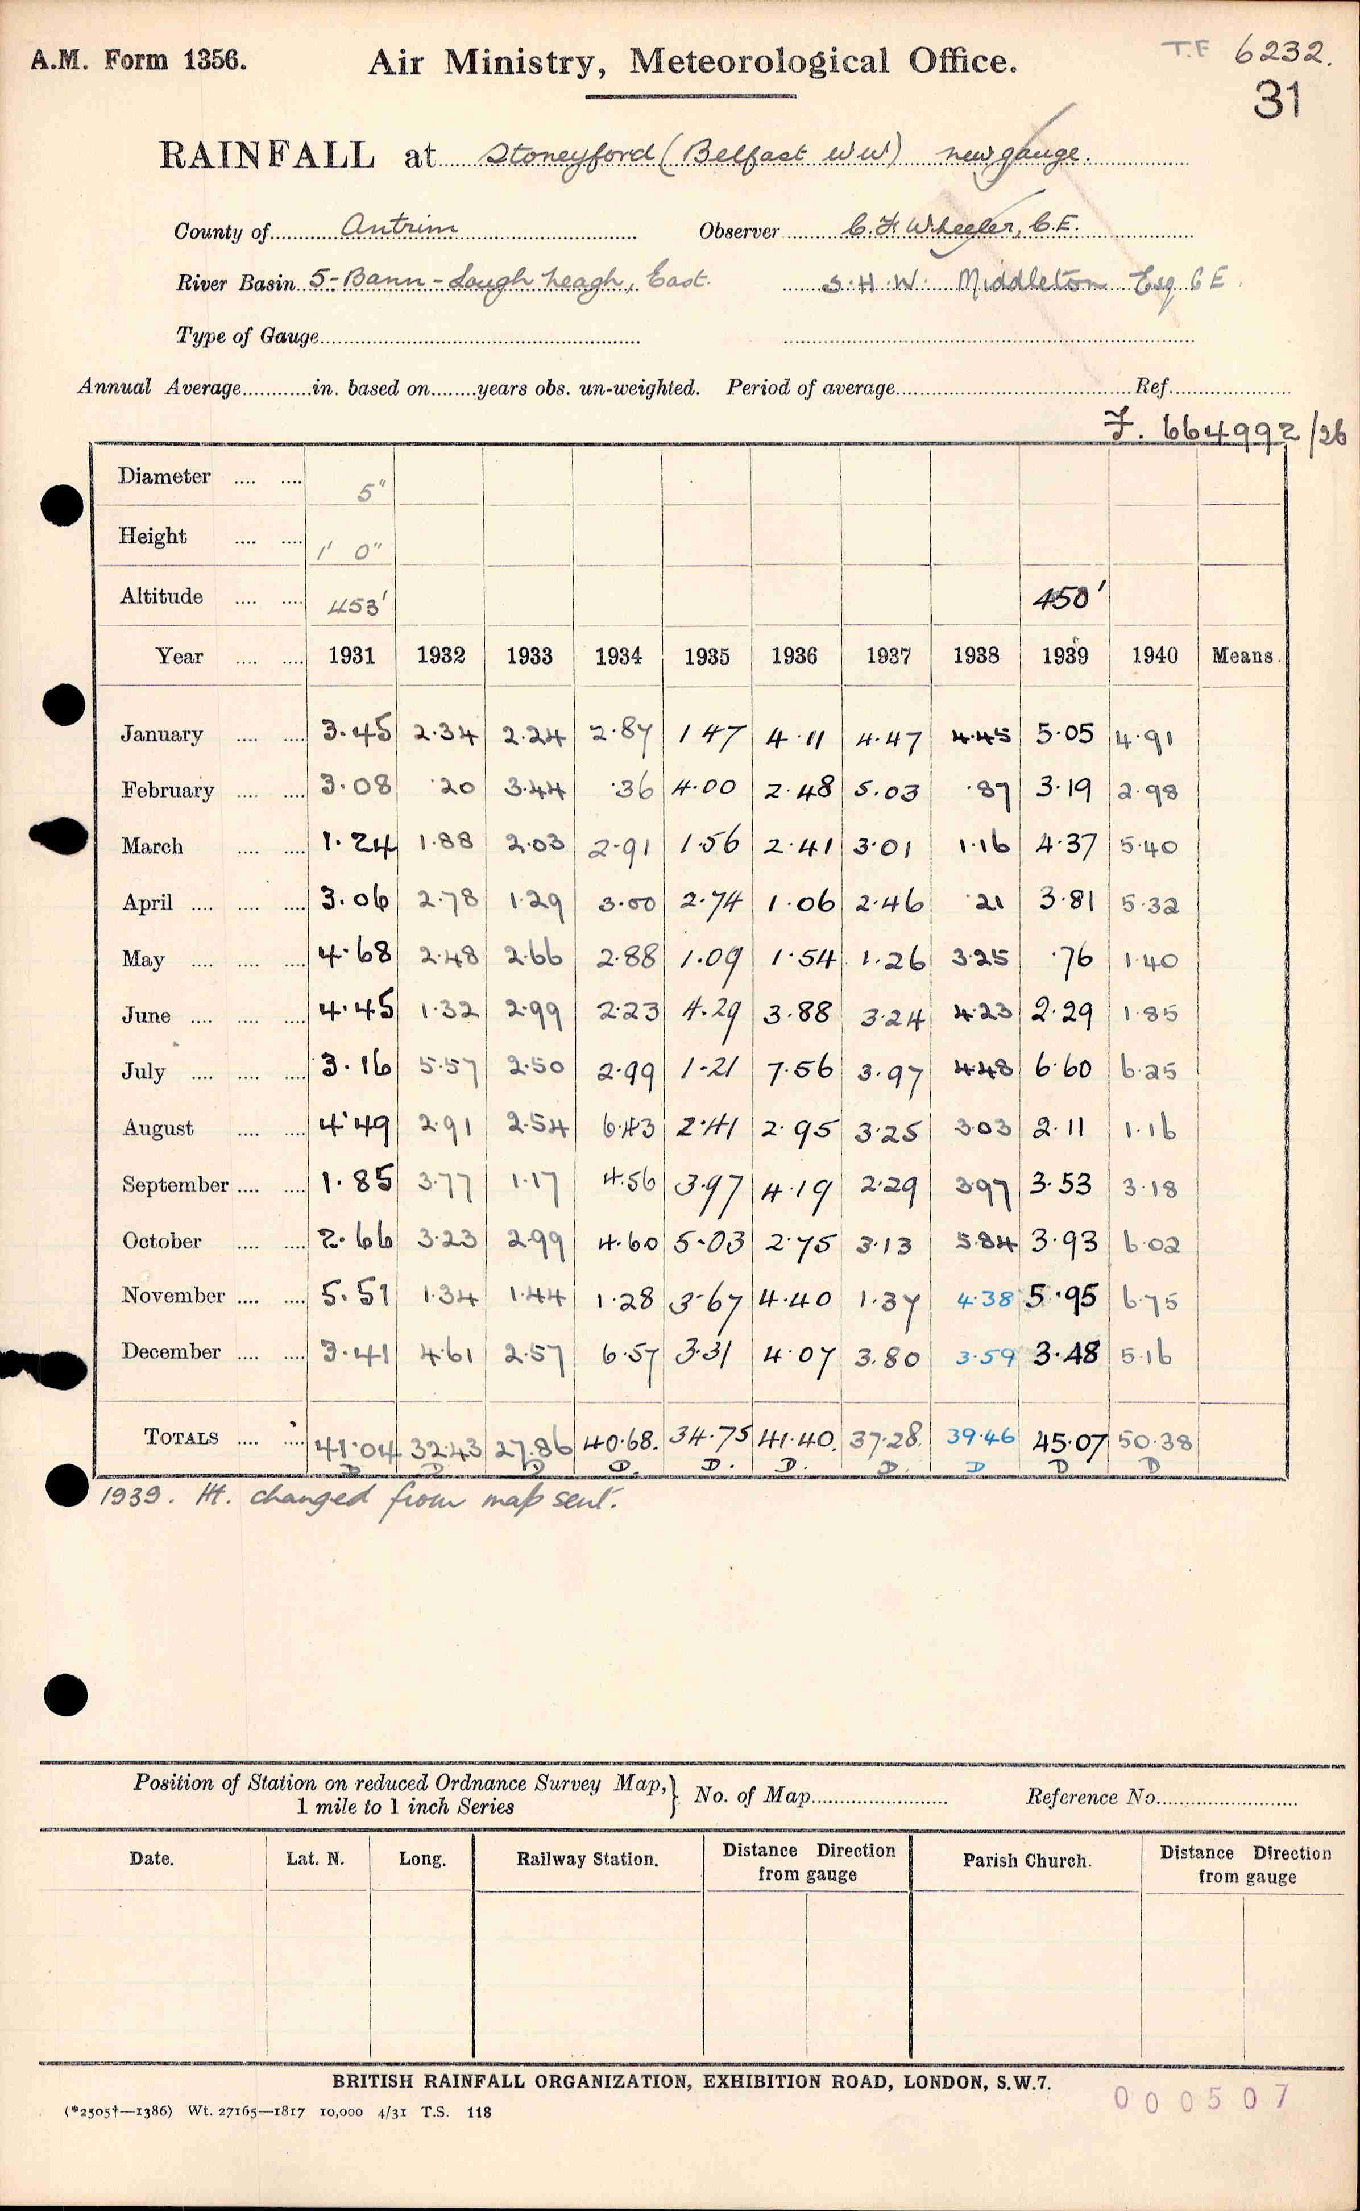 A.M. Form 1356. Air Ministry, Meteorological Office. T.F 6232.
31
RAINFALL at Stoneyford (Belfast WW) new gauge.
County of Antrim Observer C. F. Wheeler, C.E.
River Basin 5-Bann-Lough Neagh, East. S.H.W. Middleton Esq CE.
Type of Gauge
Annual Average in. based on years obs. un-weighted. Period of average Ref.
I. 664992/26
Diameter 5"
Height 1' 0"
Altitude 453' 450'
Year 1931 1932 1933 1934 1935 1936 1937 1938 1939 1940 Means.
January 3.45 2.34 2.24 2.87 1.47 4.11 4.47 4.45 5.05 4.91
February 3.08 .20 3.44 .36 4.00 2.48 5.03 .87 3.19 2.98
March 1.24 1.88 2.03 2.91 1.56 2.41 3.01 1.16 4.37 5.40
April 3.06 2.78 1.29 3.00 2.74 1.06 2.46 .21 3.81 5.32
May 4.68 2.48 2.66 2.88 1.09 1.54 1.26 3.25 .76 1.40
June 4.45 1.32 2.99 2.23 4.29 3.88 3.24 4.23 2.29 1.85
July 3.16 5.57 2.50 2.99 1.21 7.56 3.97 4.48 6.60 6.25
August 4.49 2.91 2.54 6.43 2.41 2.95 3.25 3.03 2.11 1.16
September 1.85 3.77 1.17 4.56 3.97 4.19 2.29 3.97 3.53 3.18
October 2.66 3.23 2.99 4.60 5.03 2.75 3.13 5.84 3.93 6.02
November 5.51 1.34 1.44 1.28 3.67 4.40 1.37 4.38 5.95 6.75
December 3.41 4.61 2.57 6.57 3.31 4.07 3.80 3.59 3.48 5.16
TOTALS 41.04 32.43 27.86 40.68. 34.75 41.40. 37.28. 39.46 45.07 50.38
D D D D. D. D. D. D D D
1939. Ht. changed from map sent.
Position of Station on reduced Ordnance Survey Map,} No. of Map Reference No.
1 mile to 1 inch Series
Date. Lat. N. Long. Railway Station. Distance Direction from gauge Parish Church. Distance Direction from gauge
BRITISH RAINFALL ORGANIZATION, EXHIBITION ROAD, LONDON, S.W.7.
000507
(*2505†—1386) Wt. 27165—1817 10,000 4/31 T.S. 118